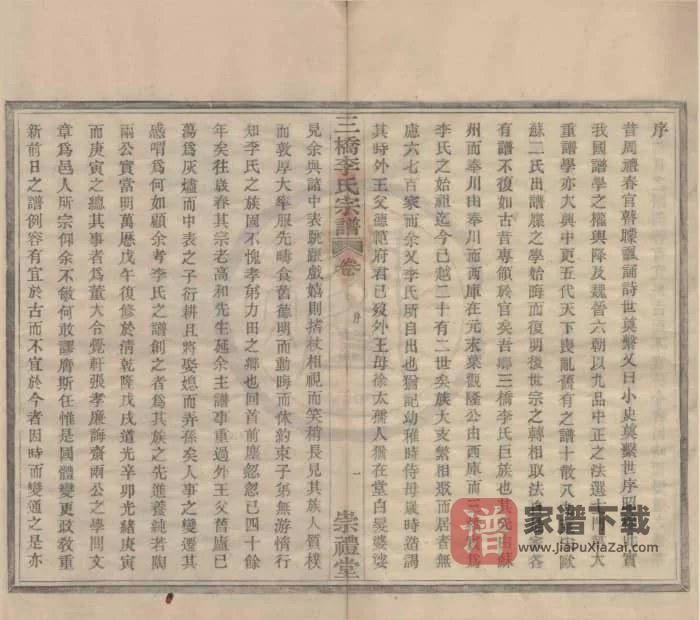 序
昔周禮春官瞽矇諷誦詩世奠繫又曰小史奠繫世序昭
實
我國譜學之權輿降及魏晉六朝以九品中正之法選士
大
重譜學亦大興中更五代天下喪亂舊有之譜十散八
歐
蘇二氏出譜牒之學始晦而復明後世宗之轉相取法
有譜不復如古昔專領於官矣吾鄉三橋李氏巨族也其
由蘇
州而奉川由奉川而西庫在元末葉觀隆公由西庫而三
為
李氏之始祖迄今已越二十有二世矣族大支繁相聚而居者無
慮六七百家而余又李氏所自出也猶記幼稚時侍母歲時造謁
其時外王父德範府君已歿外王母徐太孺人猶在堂白髮婆娑
三橋李氏宗譜 卷 序 一 崇禮堂
見余與諸中表跳踉戲嬉則搘杖相視而笑稍長見其族人質樸
而敦厚大率服先疇食舊德明而動晦而休約束子弟無游惰行
知李氏之族固不愧孝弟力田之鄉也回首前塵忽忽已四十餘
年矣往歲春其宗老高和先生延余主譜事重過外王父舊廬已
蕩為灰燼而中表之子衍耕且將娶媳而弄孫矣人事之變遷其
感喟為何如顧余考李氏之譜創之者為其族之先進養純若陶
兩公實當明萬曆戊午復修於清乾隆戊戌道光辛卯光緒庚寅
而庚寅之總其事者為董大令覺軒張孝廉誨齋兩公之學問文
章為邑人所宗仰余不敏何敢謬膺斯任惟是國體變更政教重
新前日之譜例容有宜於古而不宜於今者因時而變通之是亦
家谱下载
www.JiaPuXiaZai.com
譜